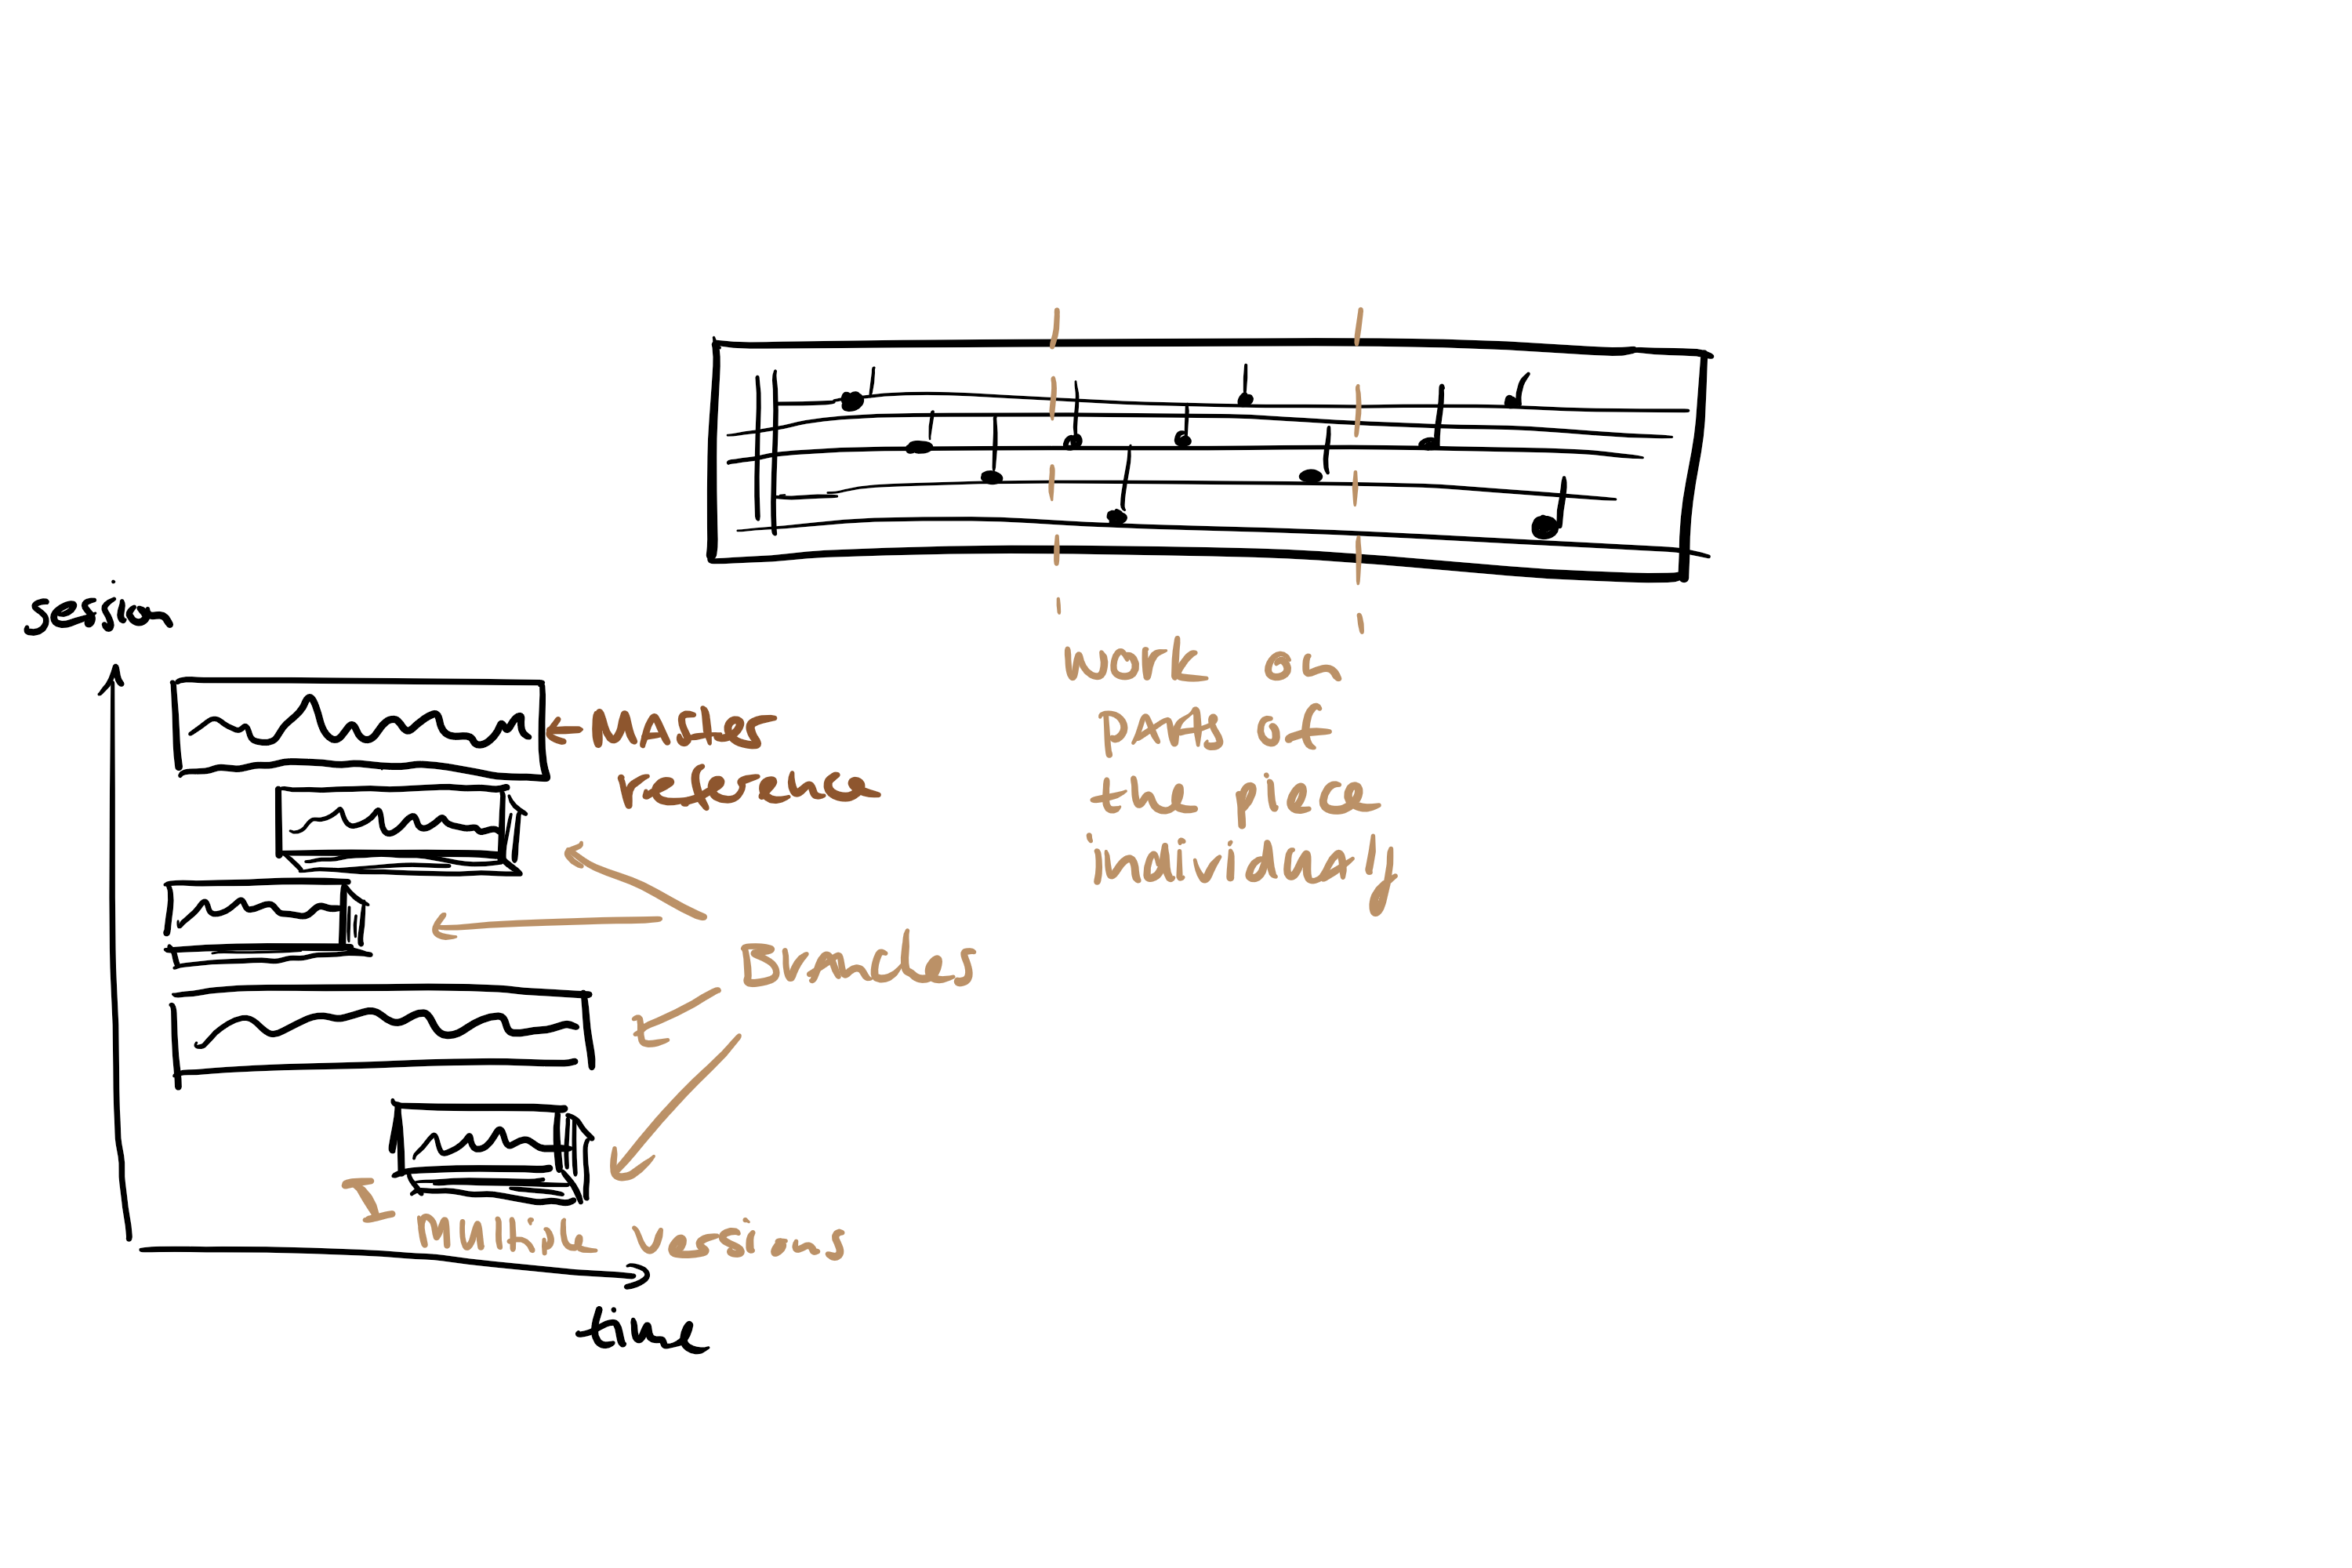 session
work on
parts of
the piece
individually
Master
reference
Branches
multiple versions
time